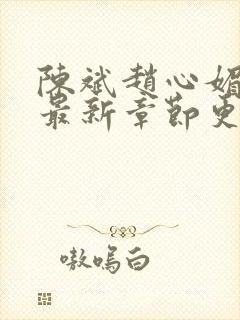 陳斌趙心媚
最新章節更
嗷嗚白